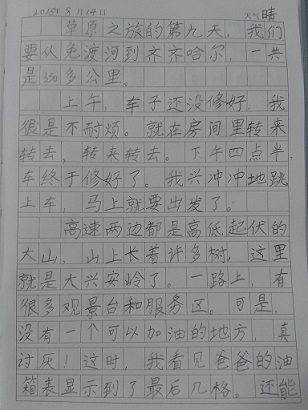 2015年8月14日 天气晴
草原之旅的第九天，我们
要从兔渡河到齐齐哈尔，一共
是350多公里。
上午，车子还没修好，我
很是不耐烦。就在房间里转来
转去，转来转去。下午四点半，
车终于修好了。我兴冲冲地跳
上车，马上就要出发了。
高速两边都是高低起伏的
大山，山上长着许多树，这里
就是大兴安岭了。一路上，有
很多观景台和服务区。可是，
没有一个可以加油的地方，真
讨厌！这时，我看见爸爸的油
箱表显示到了最后几格。还能